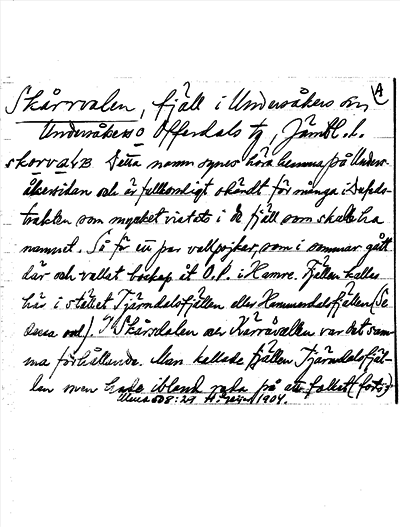 A
Skårrvalen, fjäll i Undersåkers sn,
Undersåkers o Offerdals tg, Jämtl. l.
Detta namn synes höra hemma på Unders-
åkerssidan och är fullkomligt okändt för många i
trakten som mycket vistats i de fjäll som skulle ha
namnet. Så för ett par vallpojkar, som i sommar gått
där och vallat boskap åt O.P. i Hamre. Fjällen kallas
här i stället Tjärndalsfjällen eller Hammardalsfjällen (Se
dessa ord). Skårsdalen var det sam-
ma förhållande. Man kallade fjällen Tjärndalsfjäl-
len men hade ibland på att folket (forts.)
508:29 1904.